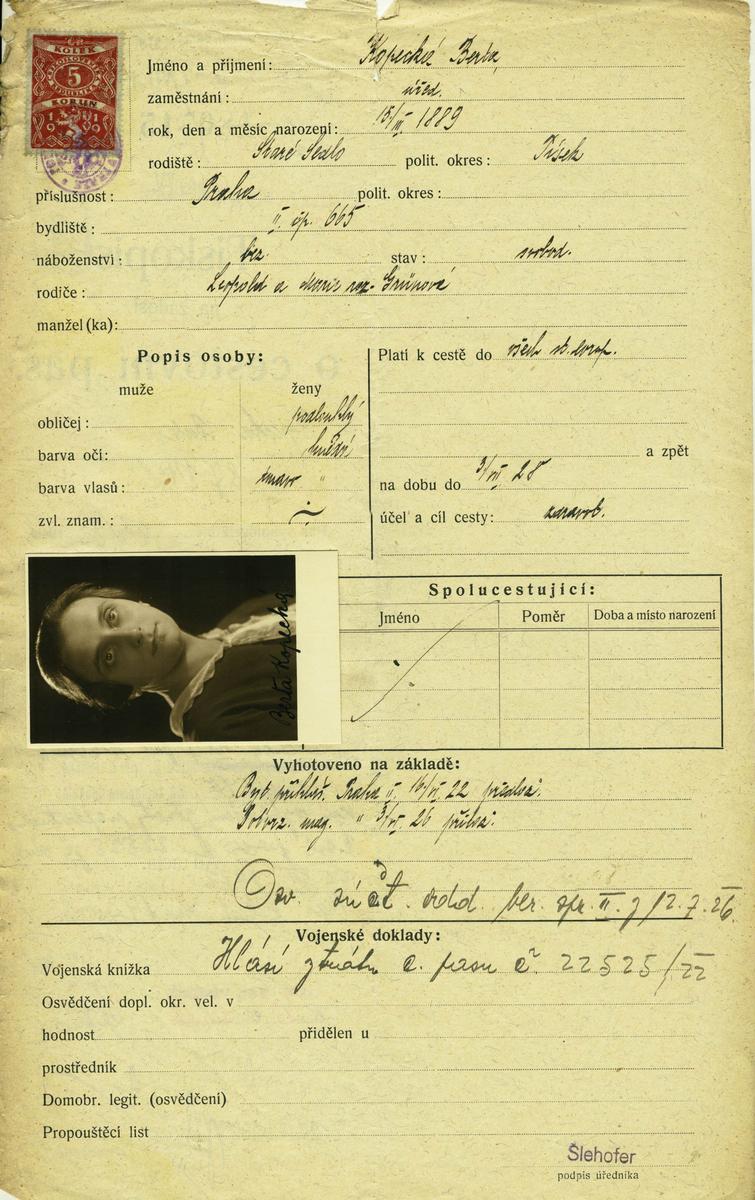 KOLEK
5
KORUN
1919
Jméno a příjmení: Kopecká Berta
zaměstnání: úřed.
rok, den a měsíc narození: 15/III 1889
rodiště: Staré Sedlo polit. okres:
příslušnost: Praha polit. okres:
bydliště: II čp. 665
náboženství: bez stav: svobod.
rodiče: Leopold a Marie roz. Grünová
manžel (ka):
Popis osoby:
muže ženy
obličej: podlouhlý
barva očí: hnědé
barva vlasů: tmavo "
zvl. znam.:
Platí k cestě do všech st. evrop.
a zpět
na dobu do 3/VII 28
účel a cíl cesty: zdravot.
Berta Kopecká
Spolucestující:
Jméno Poměr Doba a místo narození
Vyhotoveno na základě:
Byt. přihláš. Praha II 16/VI 22
mag. " 3/VII 26
Osv. odd. ber. spr. II. z 12.7.26.
Vojenské doklady:
Vojenská knížka Hlásí ztrátu c. pasu č. 22525/22
Osvědčení dopl. okr. vel. v
hodnost přidělen u
prostředník
Domobr. legit. (osvědčení)
Propouštěcí list
Šlehofer
podpis úředníka